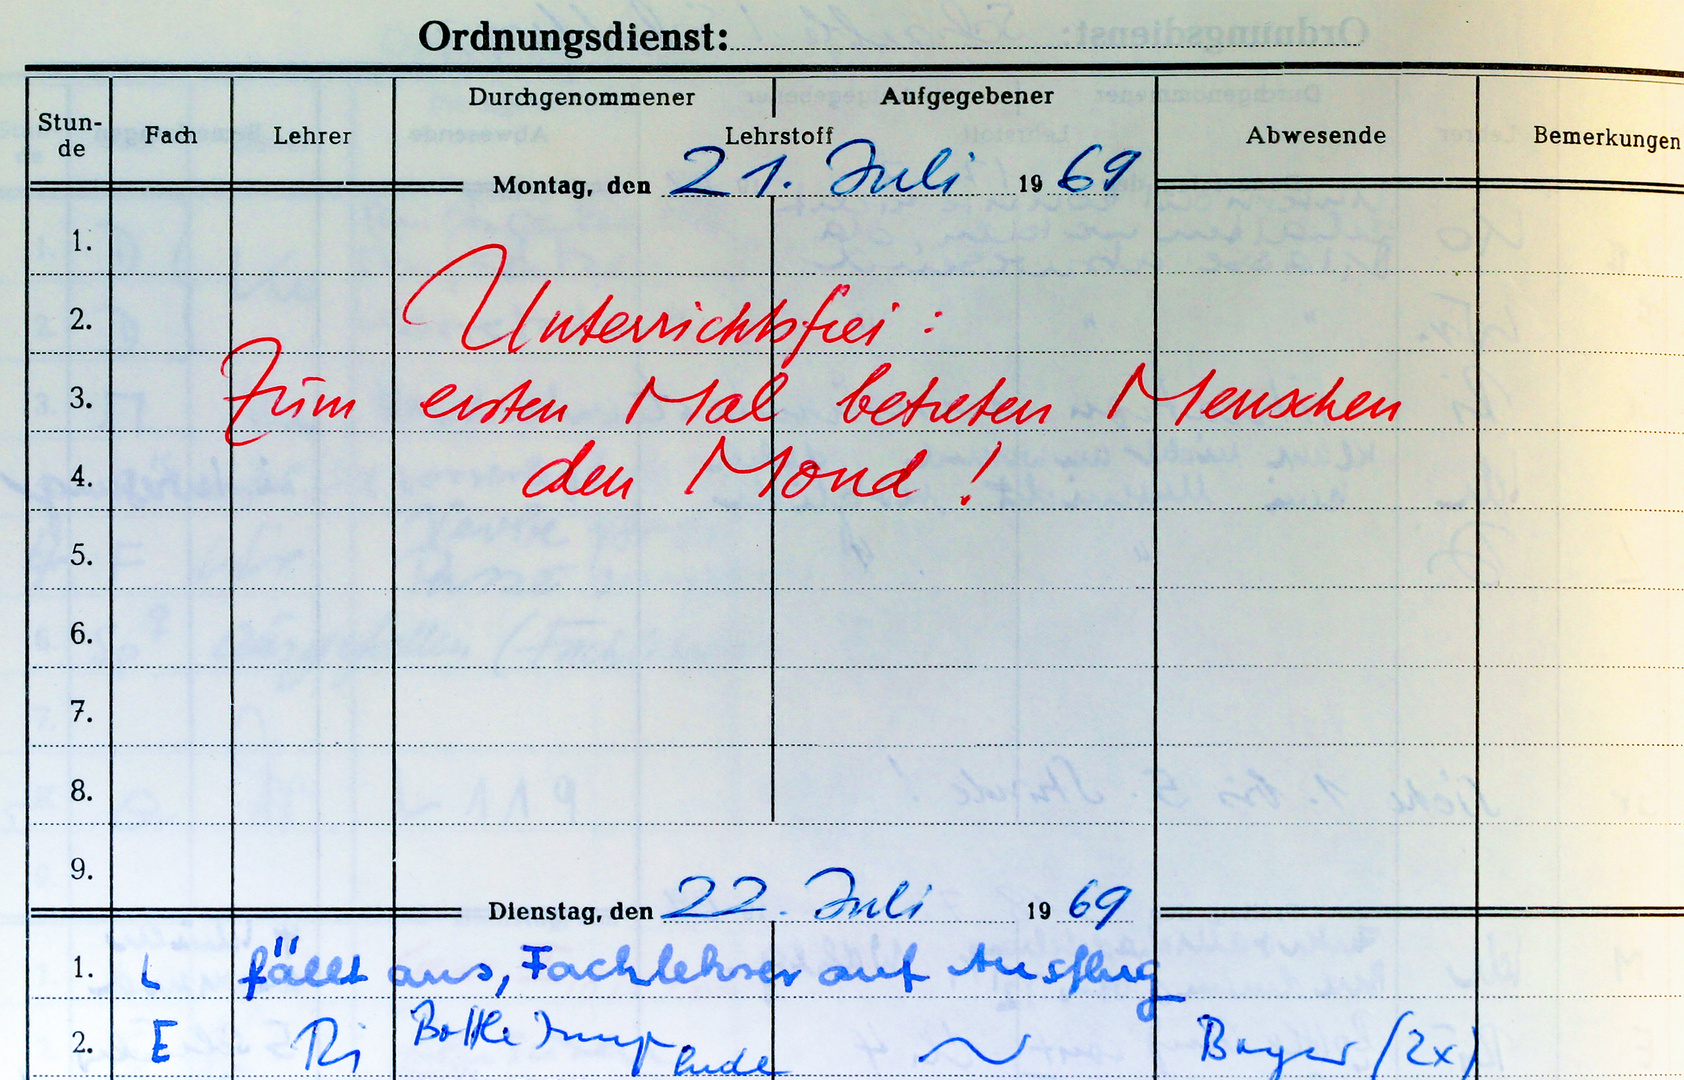 Ordnungsdienst:
Stun-
de Fach Lehrer Durchgenommener Aufgegebener
Lehrstoff Abwesende Bemerkungen
Montag, den 21. Juli 1969
1.
2. Unterrichtsfrei :
3. Zum ersten Mal betreten Menschen
4. den Mond !
5.
6.
7.
8.
9.
Dienstag, den 22. Juli 1969
1. L fällt aus, Fachlehrer auf Ausflug
2. E Ri Battle Ende (2x)